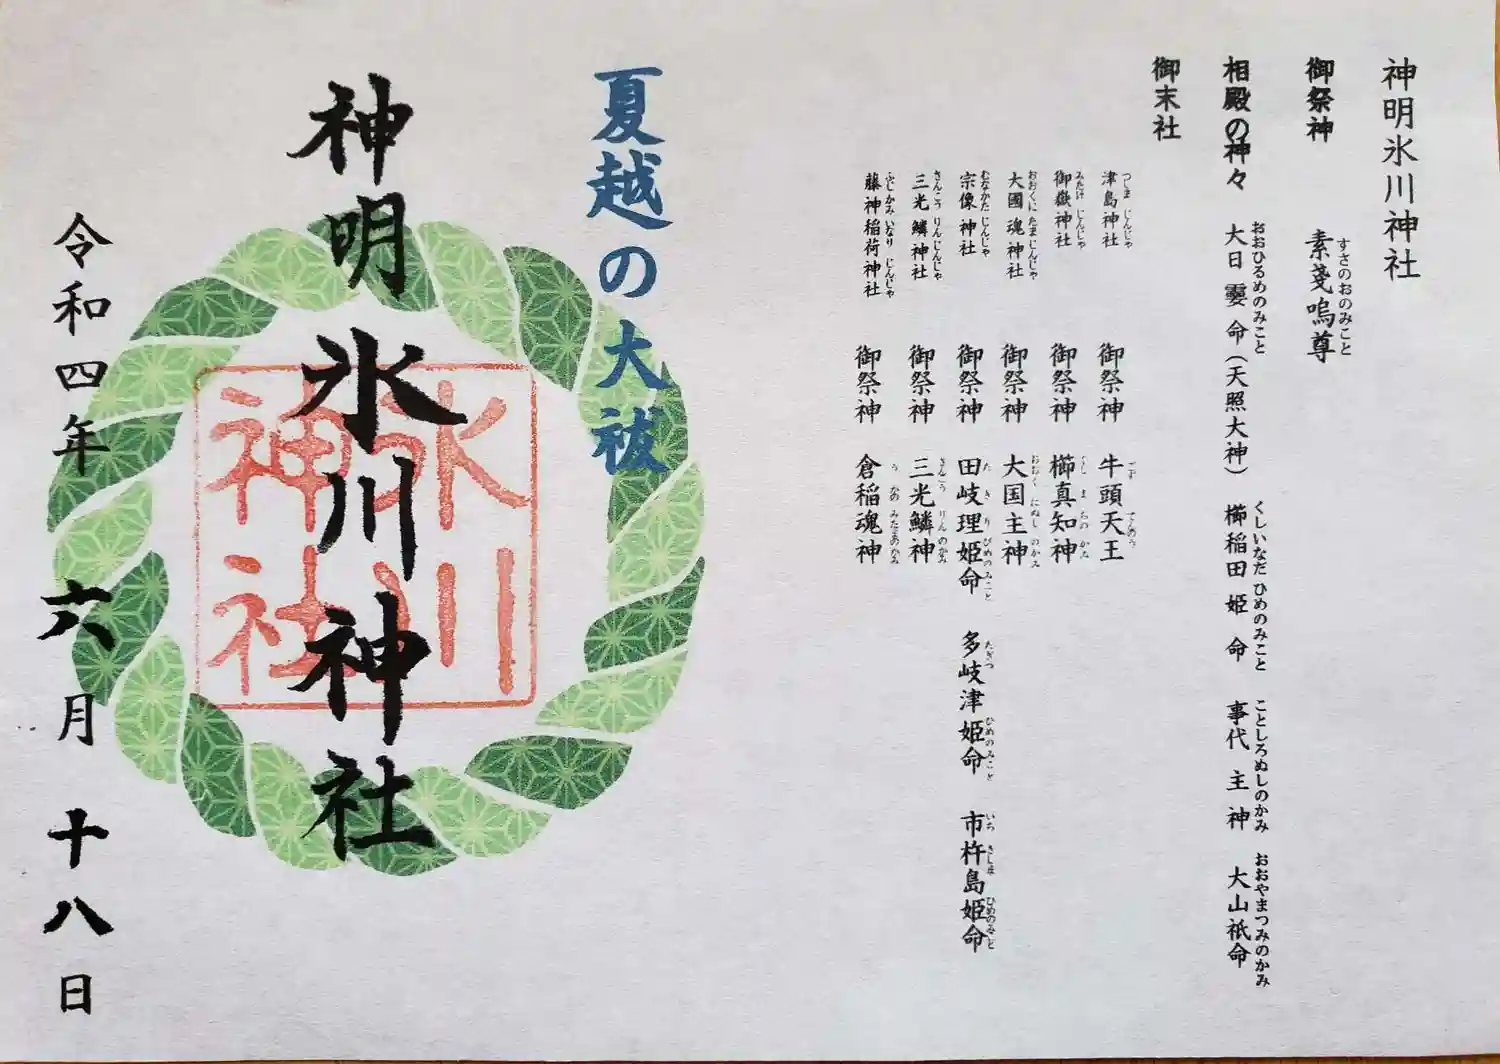 神明氷川神社
御祭神 素戔嗚尊
すさのおのみこと
相殿の神々 大日孁命(天照大神) 櫛稲田姫命 事代主神 大山祇命
おおひるめのみこと くしいなだひめのみこと ことしろぬしのかみ おおやまつみのかみ
御末社
津島神社 御祭神 牛頭天王
つしまじんじゃ ごずてんのう
御嶽神社 御祭神 櫛真知神
みたけじんじゃ くしまちのかみ
大國魂神社 御祭神 大国主神
おおくにたまじんじゃ おおくにぬしのかみ
宗像神社 御祭神 田岐理姫命 多岐津姫命 市杵島姫命
むなかたじんじゃ たきりひめのみこと たぎつひめのみこと いちきしまひめのみこと
三光鱗神社 御祭神 三光鱗神
さんこうりんじんじゃ さんこうりんのかみ
藤神稲荷神社 御祭神 倉稲魂神
ふじかみいなりじんじゃ うかのみたまのかみ
夏越の大祓
神明氷川神社
氷川
神社
令和四年六月十八日